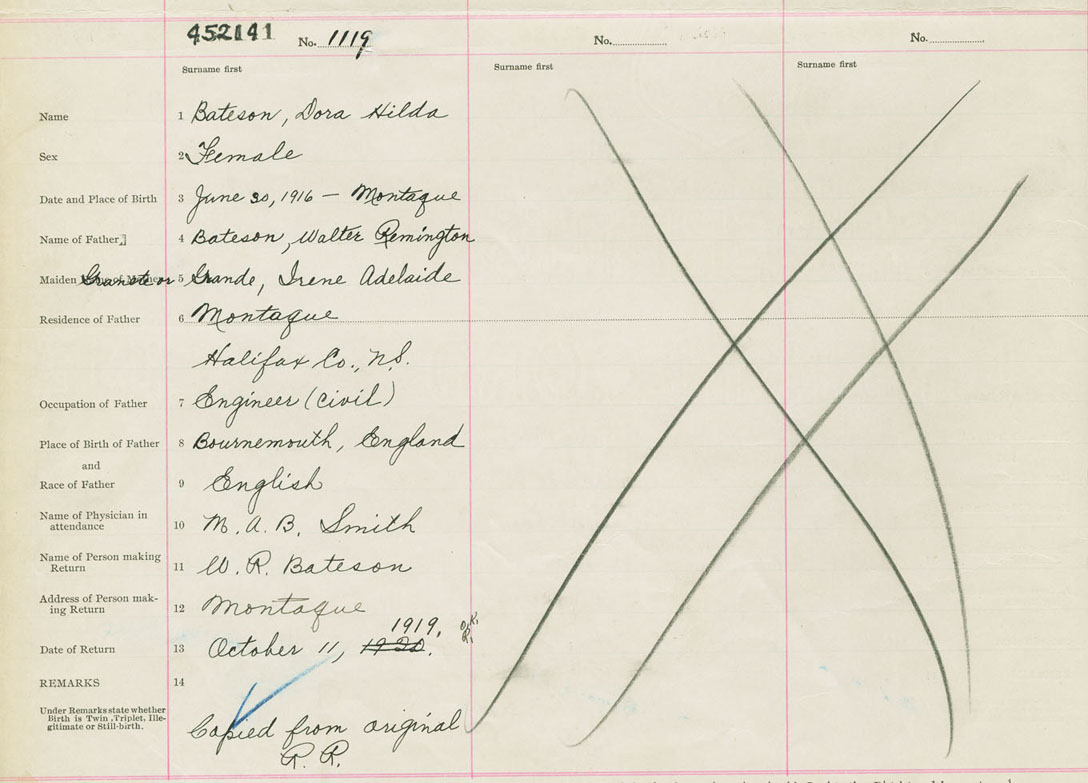 452141 No. 1119 No. No.
Surname first Surname first Surname first
Name 1 Bateson, Dora Hilda
Sex 2 Female
Date and Place of Birth 3 June 30, 1916 — Montague
Name of Father 4 Bateson, Walter Remington
Maiden Name of Mother 5 Grande, Irene Adelaide
Residence of Father 6 Montague
Halifax Co., N.S.
Occupation of Father 7 Engineer (civil)
Place of Birth of Father 8 Bournemouth, England
and
Race of Father 9 English
Name of Physician in
attendance 10 M. A. B. Smith
Name of Person making
Return 11 W. R. Bateson
Address of Person mak-
ing Return 12 Montague
1919.
Date of Return 13 October 11, 1920.
REMARKS 14
Under Remarks state whether
Birth is Twin, Triplet, Ille-
gitimate or Still-birth.
Copied from original
R. R.